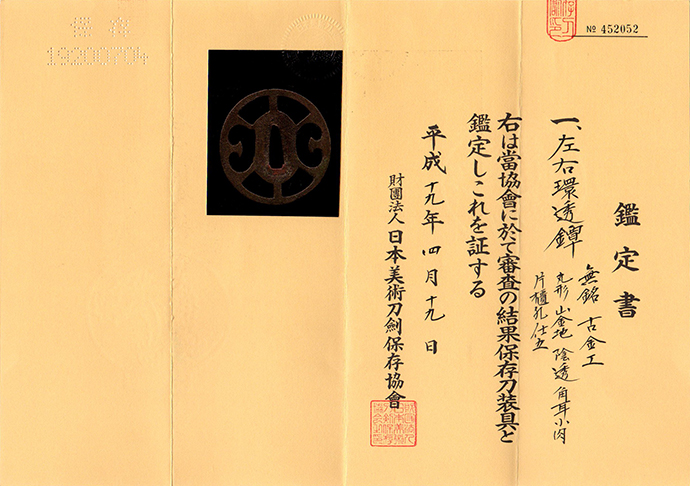 鑑定書
一、左右環透鐔
無銘 古金工
丸形 山金地 陰透 角耳小肉
片櫃孔 仕立
右は當協會に於て審査の結果保存刀装具と
鑑定しこれを証する
平成十九年四月十九日
財團法人 日本美術刀劍保存協會
№ 452052
保存
19200704